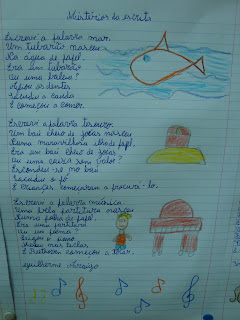 Mistérios da escrita
Escrevi a palavra mar.
Um tubarão nasceu
Na água de papel.
Era um tubarão
ou uma baleia?
os dentes
Sacudiu a cauda
E começou a comer.
Escrevi a palavra tesouro.
Um baú cheio de joias nasceu
Numa maravilhosa ilha de papel.
Era um baú cheio de joias
ou uma caixa sem valor?
Escondeu-se no baú
Sacudiu o pó
E crianças começaram a procurá-lo.
Escrevi a palavra música
Uma bela partitura nasceu
Numa folha de papel.
Era uma partitura
ou um piano?
o piano
nas teclas
E Beethoven começou a tocar.
Guilherme Araújo